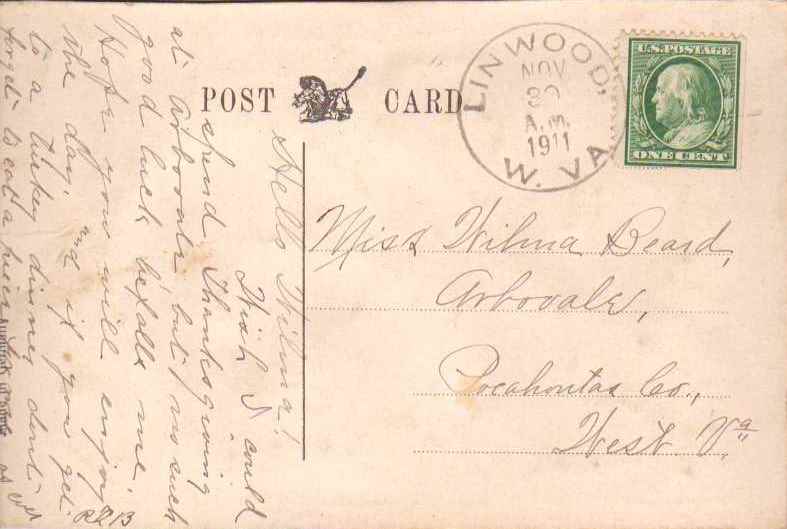 POST CARD
LINWOOD,
NOV
30
A.M.
1911
W. VA
U.S. POSTAGE
ONE CENT
Miss Wilma Beard,
Arbovale,
Pocahontas Co.,
West Va
Hello Wilma!
Wish I could
spend Thanksgiving
at Arbovale but no such
good luck befalls me.
Hope you will enjoy
the day, and if you get
to a turkey dinner don't
forget to eat a piece
as ever